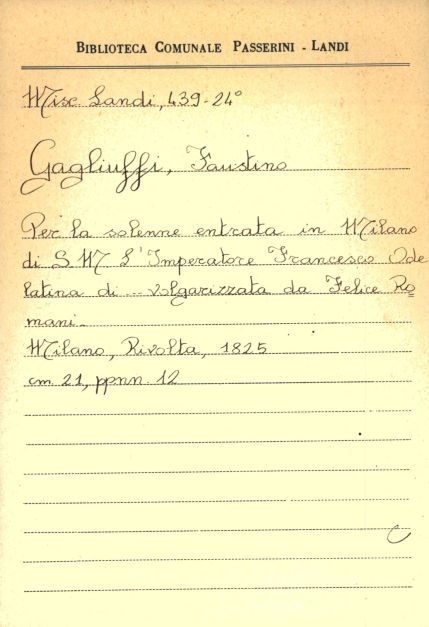 BIBLIOTECA COMUNALE PASSERINI - LANDI
Misc. Landi, 439-24°
Gagliuffi, Faustino
Per la solenne entrata in Milano
di S. M. L'Imperatore Francesco Ode
latina di ... volgarizzata da Felice Ro=
mani.
Milano, Rivolta, 1825
cm. 21, ppnn. 12
C